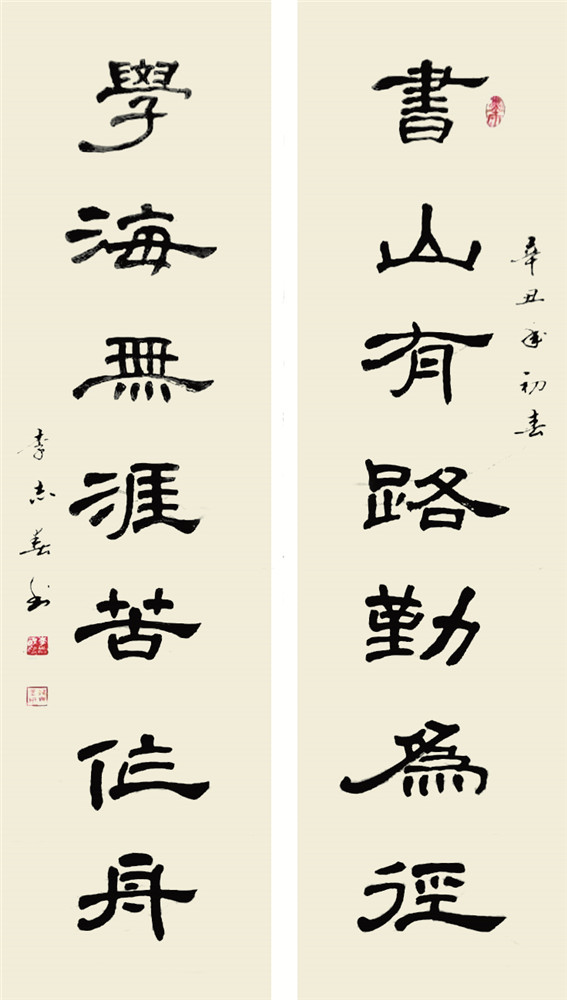 書山有路勤為徑
辛丑年初春
學海無涯苦作舟
李志春书